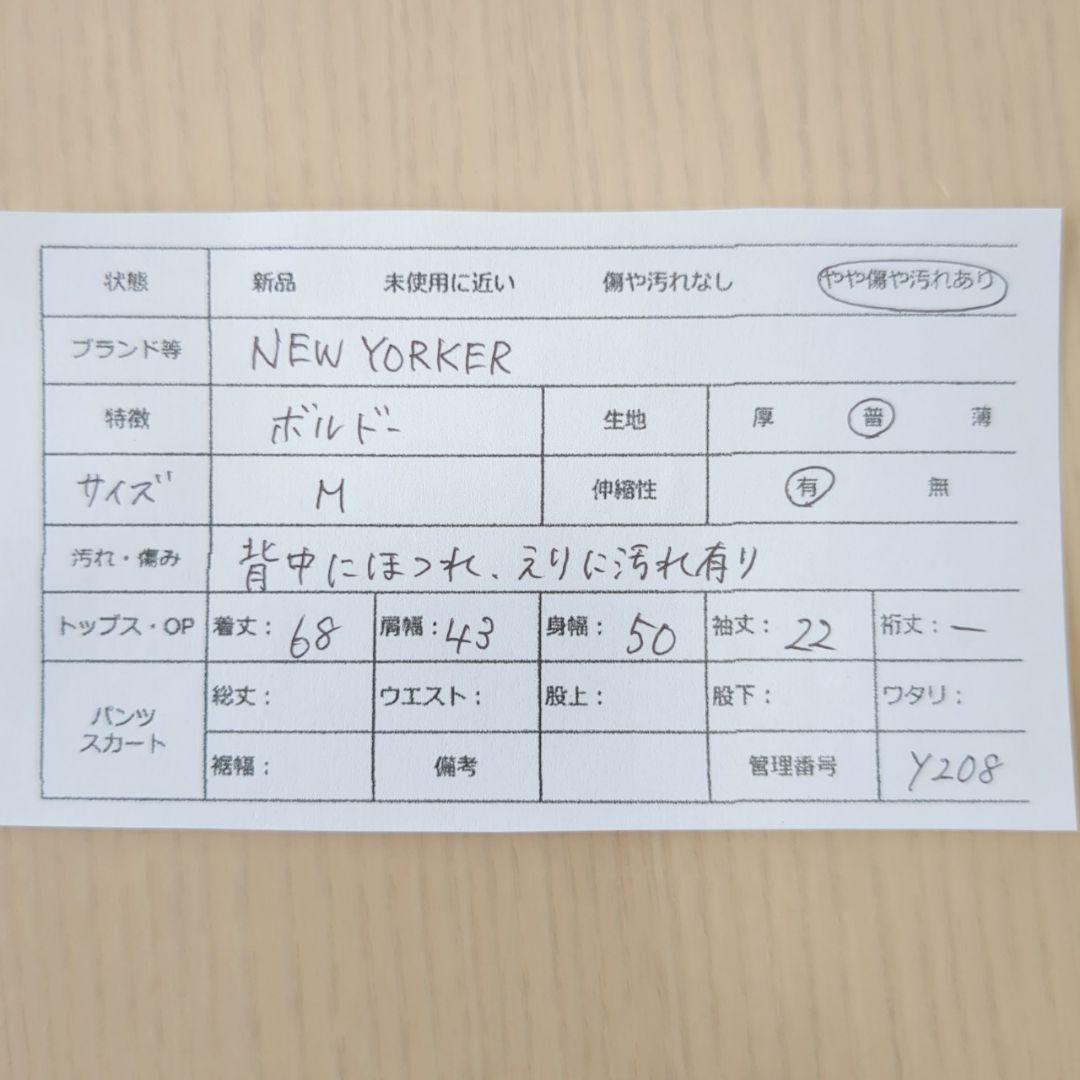 状態 新品 未使用に近い 傷や汚れなし やや傷や汚れあり
ブランド等 NEW YORKER
特徴 ボルドー 生地 厚 普 薄
サイズ M 伸縮性 有 無
汚れ・傷み 背中にほつれ、えりに汚れ有り
トップス・OP 着丈：68 肩幅：43 身幅：50 袖丈：22 裄丈：ー
パンツ
スカート
総丈： ウエスト： 股上： 股下： ワタリ：
裾幅： 備考 管理番号 Y208